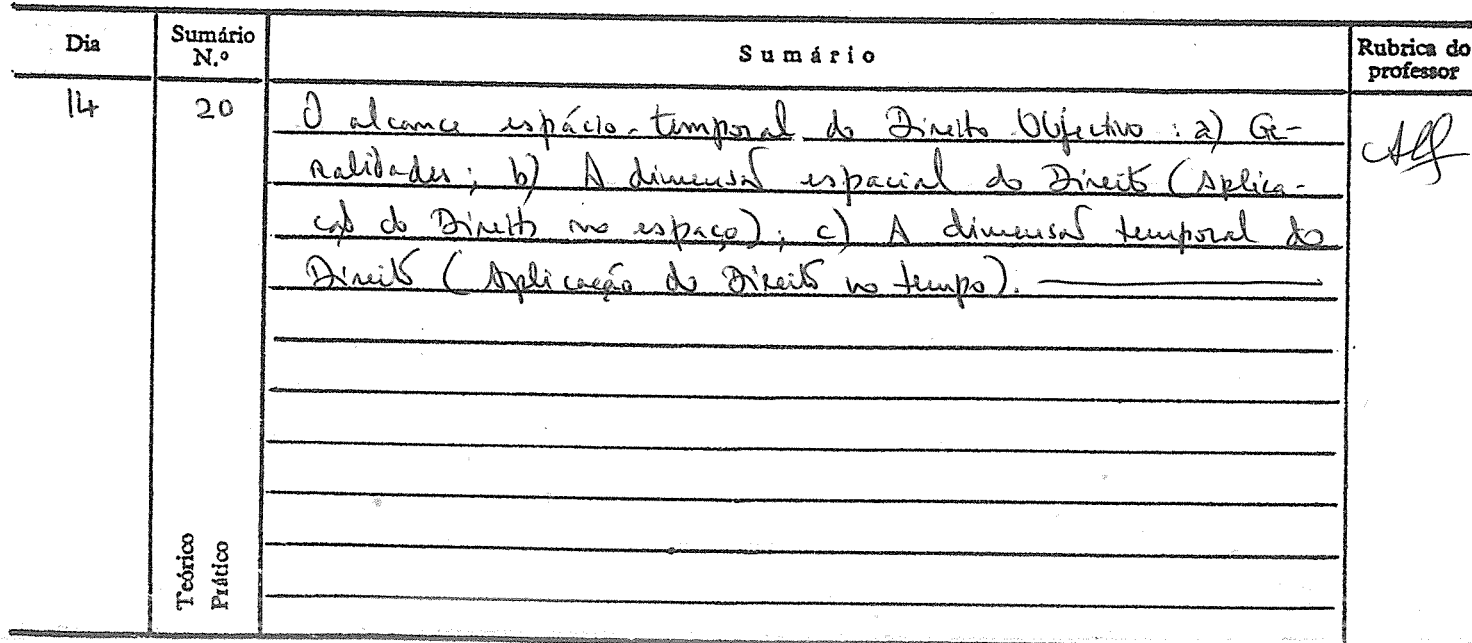 Dia
Sumário N.º
Sumário
Rubrica do professor
14
20
O alcance espácio-temporal do Direito Objectivo: a) Ge-
neralidades; b) A dimensão espacial do Direito (Aplica-
ção do Direito no espaço); c) A dimensão temporal do
Direito (Aplicação do Direito no tempo).
Teórico
Prático